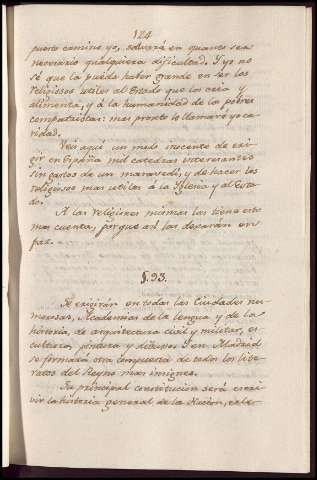 124
puesto camino yo, salvará en quanto sea
necesario qualquiera dificultad. Y yo no
sé que la pueda haber grande en ser los
religiosos utiles al Estado que los cria y
alimenta, y á la humanidad de los pobres
compatriotas: mas pronto lo llamaré yo ca-
ridad.
Veis aquí un modo inocente de eri-
gir en España mil catedras interesantes
sin gastos de un maravedi, y de hacer los
religiosos mas utiles á la Iglesia y al Esta-
do.
A las religiones mismas las tiene esto
mas cuenta, porque así las dexarán en
paz.
§. 93.
Se erigirán en todas las Ciudades nu-
merosas, Academias de la lengua y de la
historia, de arquitectura civil y militar, es-
cultura, pintura y diseño. Y en Madrid
se formará otra compuesta de todos los lite-
ratos del Reyno mas insignes.
Su principal constitucion será escri-
vir la historia general de la Nacion, ecle-